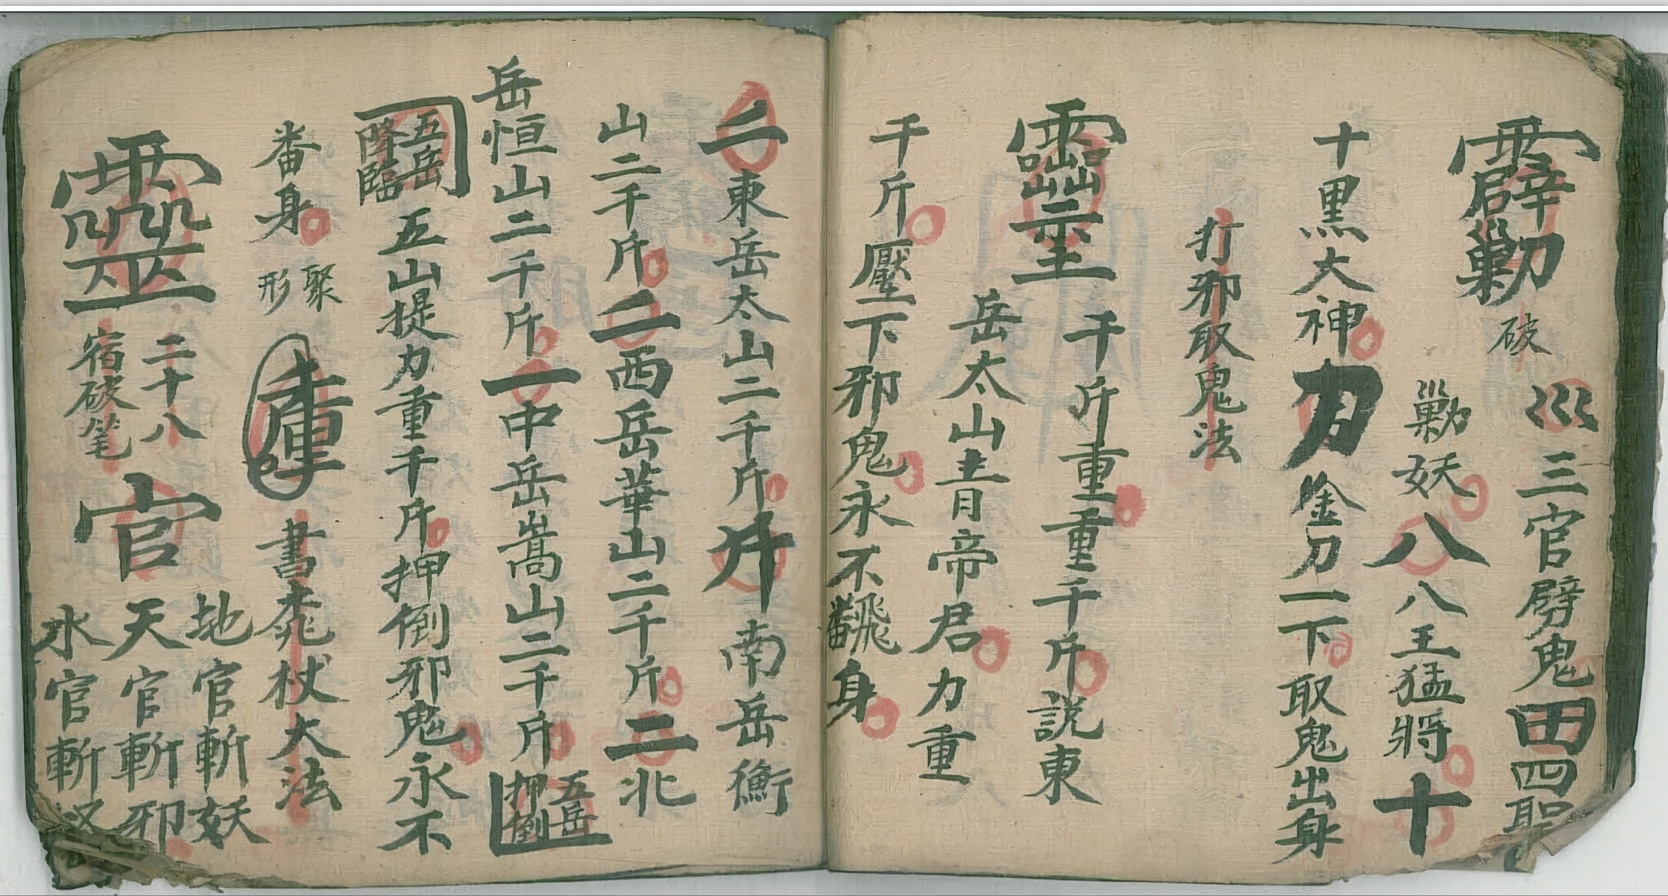 霹勦 破 巛 三官劈鬼 田 四聖
勦妖 八 八王猛將 十
十黑大神 刀 金刀一下取鬼出身
打邪取鬼法
千斤重重千斤說東
岳太山青帝君力重
千斤壓下邪鬼永不翻身
二 東岳太山二千斤 斤 南岳衡
山二千斤 二 西岳華山二千斤 二 北
岳恒山二千斤 一 中岳嵩山二千斤 五岳押倒
五岳降臨 五山提力重千斤押倒邪鬼永不
番身 聚形 書 杖大法
二十八宿破笔 官 地官斬妖
天官斬邪
水官斬